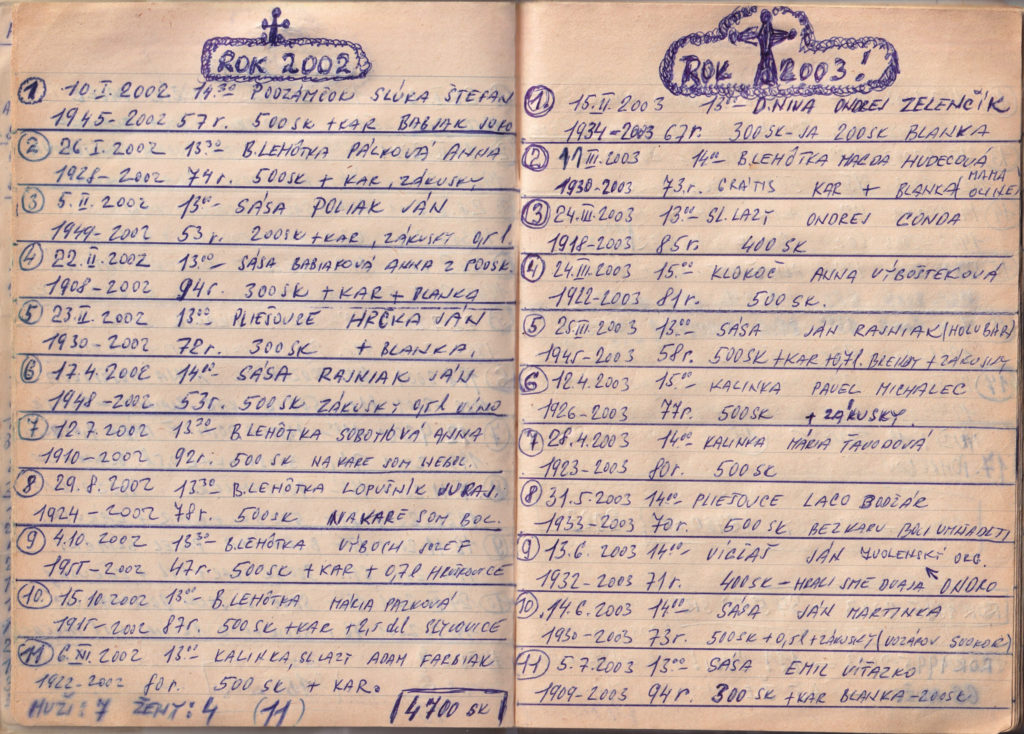 ROK 2002
1 10.I.2002 14.30 PODZÁMČOK SLÚKA ŠTEFAN
1945-2002 57r. 500SK +KAR BABIAK JOŽO
2 26.I.2002 13.30 B.LEHÔTKA PÁLKOVÁ ANNA
1928-2002 74r. 500SK + KAR, ZÁKUSKY
3 5.II.2002 13.00 SÁSA POLIAK JÁN
1949-2002 53r. 200SK +KAR, ZÁKUSKY
4 22.II.2002 13.00 SÁSA ANNA Z PODSK.
1908-2002 94r. 300SK + KAR + BLANKA
5 23.II.2002 13.00 PLIEŠOVCE HRČKA JÁN
1930-2002 72r. 300SK + BLANKA.
6 17.4.2002 14.00 SÁSA RAJNIAK JÁN
1948-2002 53r. 500SK ZÁKUSKY VÍNO
7 12.7.2002 13.30 B.LEHÔTKA ANNA
1910-2002 92r. 500SK NA KARE SOM NEBOL.
8 29.8.2002 13.30 B.LEHÔTKA LOPUŠNÍK JURAJ.
1924-2002 78r. 500SK NA KARE SOM BOL.
9 4.10.2002 13.30 B.LEHÔTKA VÝBOCH JOZEF
1955-2002 47r. 500SK + KAR + 0,7l HRUŠKOVICE
10. 15.10.2002 13.00 B.LEHÔTKA MÁRIA
1915-2002 87r. 500SK +KAR SLIVOVICE
11 6.XI.2002 13.00 KALINKA, SL.LAZY ADAM FARBIAK
1922-2002 80r. 500SK + KAR.
MUŽI: 7 ŽENY: 4 (11) 4700 SK
ROK 2003!
1. 15.II.2003 13.00 D.NIVA ONDREJ ZELENČÍK
1934-2003 67r. 300SK-JA 200SK BLANKA
2 11.III.2003 14.00 B.LEHÔTKA MAGDA HUDECOVÁ
1930-2003 73r. GRÁTIS KAR + BLANKA MAMA
3 24.III.2003 13.00 SL.LAZY ONDREJ CONDA
1918-2003 85r. 400SK
4 24.III.2003 15.00 KLOKOČ ANNA VÝBOŠTEKOVÁ
1922-2003 81r. 500SK.
5 25.III.2003 13.00 SÁSA JÁN RAJNIAK (HOLUBÁR)
1945-2003 58r. 500SK +KAR +0,7l. BRENDY + ZÁKUSKY
6 12.4.2003 15.00 KALINKA PAVEL MICHALEC
1926-2003 77r. 500SK + ZÁKUSKY.
7 28.4.2003 14.00 KALINKA MÁRIA ŤAVODOVÁ
1923-2003 80r. 500SK
8 31.5.2003 14.00 PLIEŠOVCE LACO
1933-2003 70r. 500SK BEZ KARU BOLI UHŇADETI
9 13.6.2003 14.00 VÍGĽAŠ JÁN ZVOLENSKÝ ORG.
1932-2003 71r. 400SK - HRALI SME DVAJA ONDRO
10. 14.6.2003 14.00 SÁSA JÁN MARTINKA
1930-2003 73r. 500SK +0,5l +ZÁKUSKY
11 5.7.2003 13.00 SÁSA EMIL VÍŤAZKO
1909-2003 94r. 300SK +KAR BLANKA-200SK